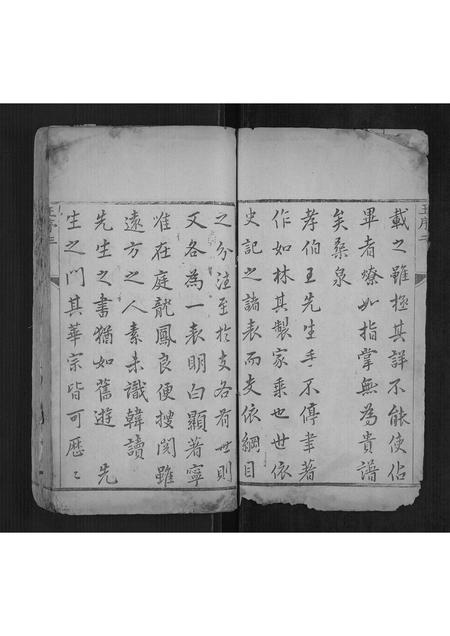 載之雖極其詳不能使佔
畢者燎如指掌無為貴譜
矣桑泉
孝伯王先生手不停聿著
作如林其製家乗也世依
史記之諸表而支依綱目
之分注至於支各有世則
又各為一表明白顯著寧
惟在庭龍鳳良便搜閱雖
遠方之人素未識韓讀
先生之書猶如舊遊 先
生之門其華宗皆可歷〻